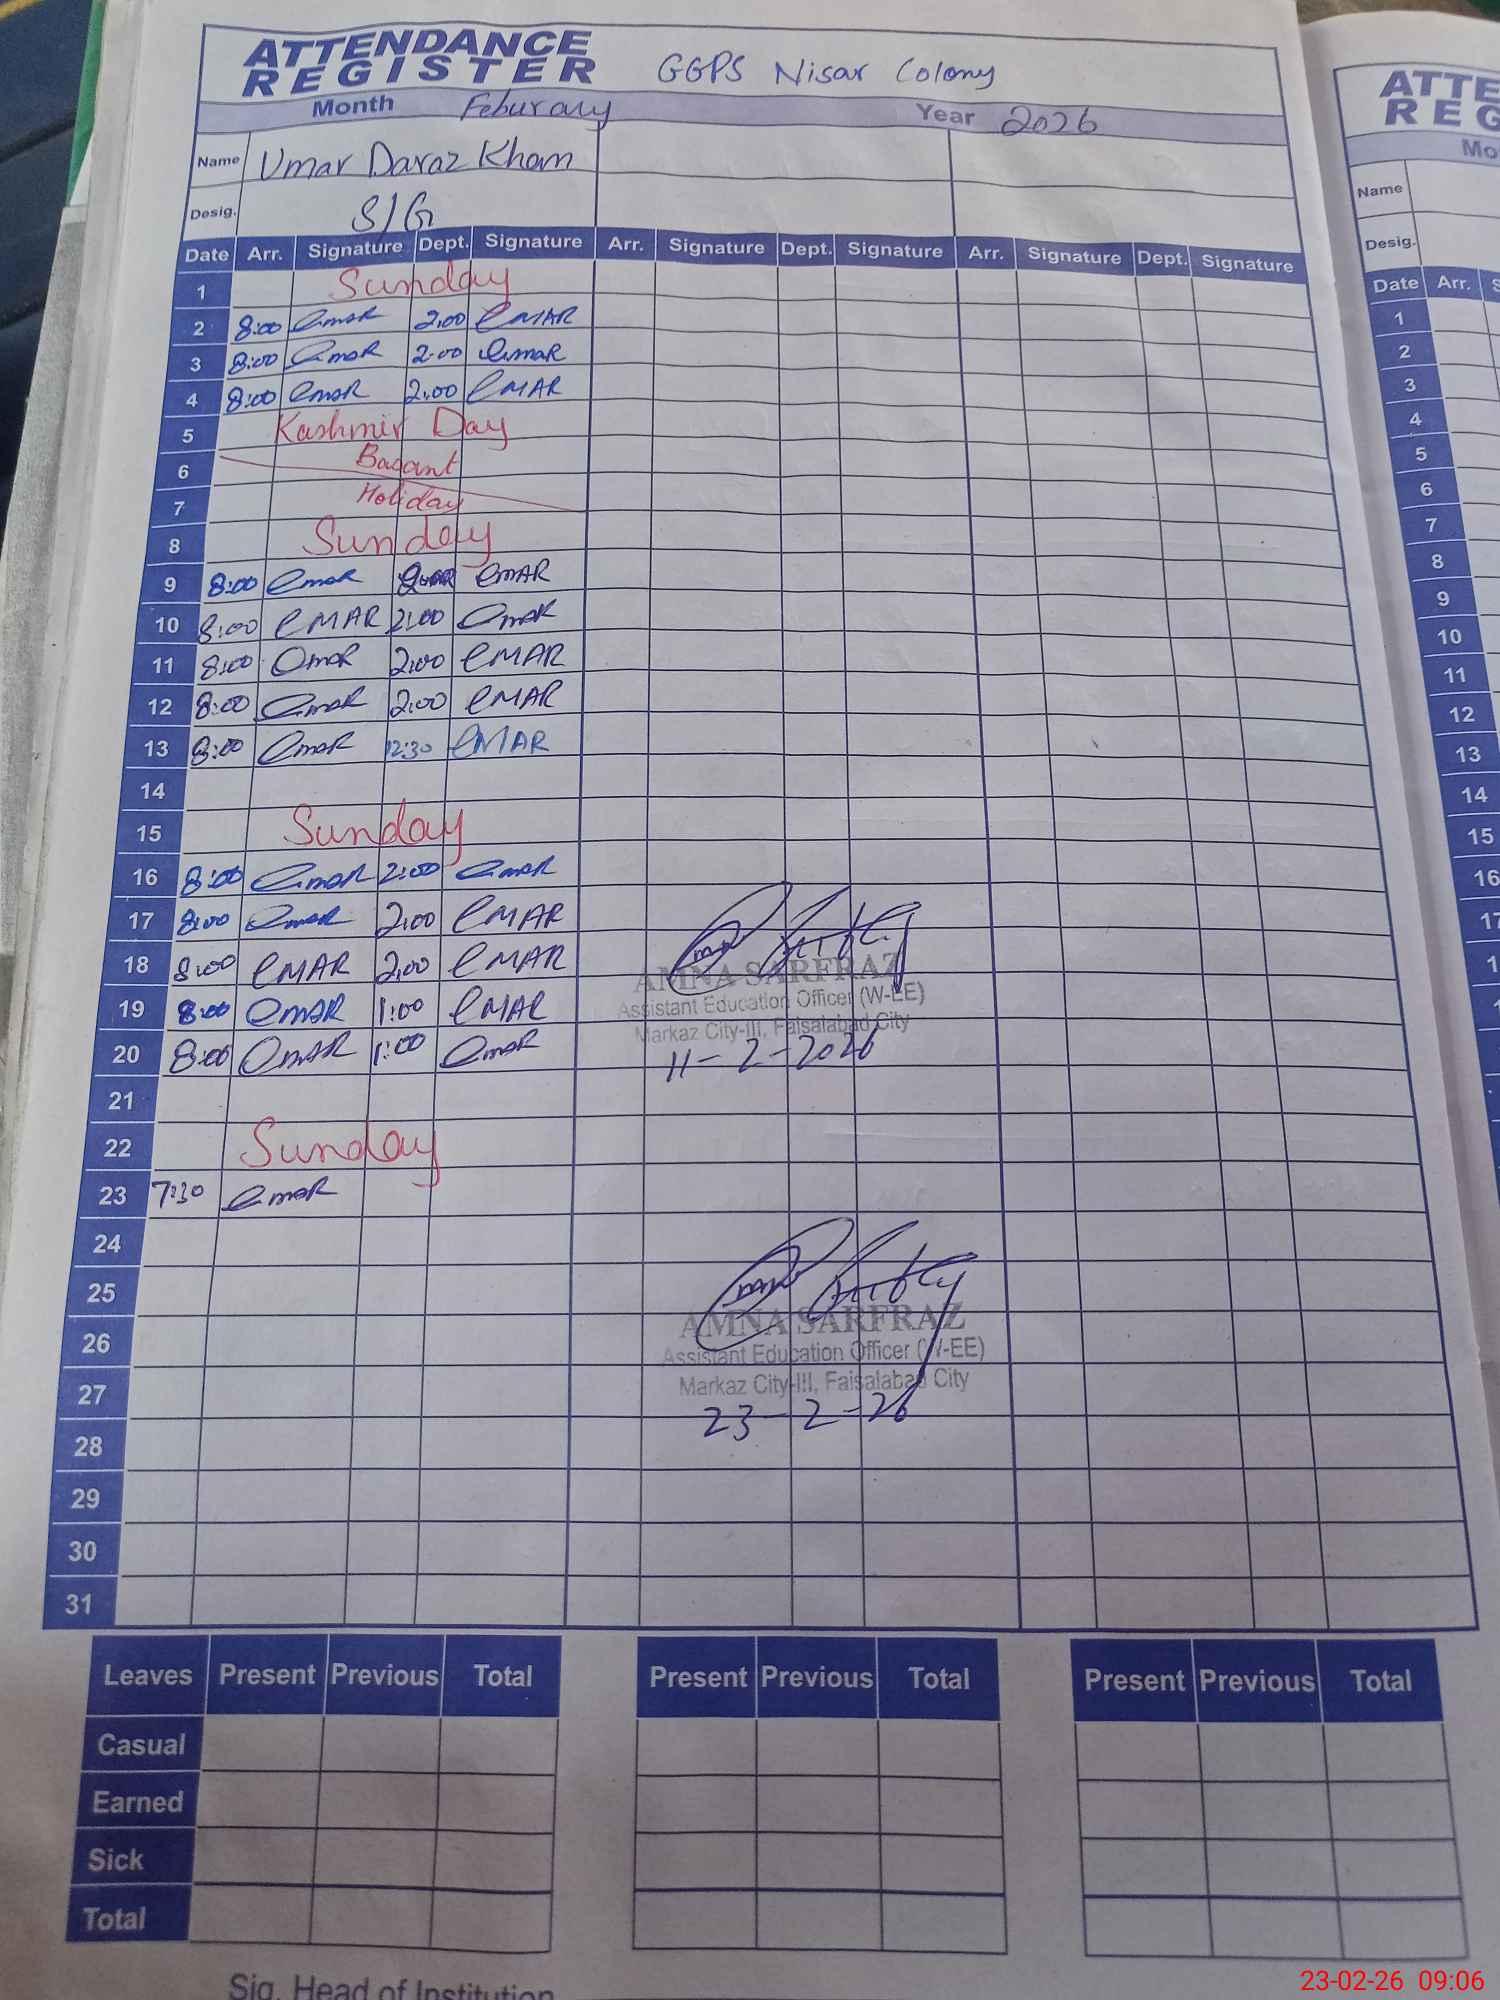 ATTENDANCE REGISTER GGPS Nisar Colony
Month Feburary Year 2026
Name Umar Daraz Khan
Desig. S/G
Date Arr. Signature Dept. Signature Arr. Signature Dept. Signature Arr. Signature Dept. Signature
1 Sunday
2 8:00 emaR 2:00 eMAR
3 8:00 emaR 2:00 emaR
4 8:00 emaR 2:00 eMAR
5 Kashmir Day
6 Basant
7 Holiday
8 Sunday
9 8:00 emaR eMAR
10 8:00 eMAR 2:00 emaR
11 8:00 emaR 2:00 eMAR
12 8:00 emaR 2:00 eMAR
13 8:00 emaR 12:30 eMAR
14
15 Sunday
16 8:00 emaR 2:00 emaR
17 8:00 emaR 2:00 eMAR
18 8:00 eMAR 2:00 eMAR
AMNA SARFRAZ
19 8:00 emaR 1:00 eMAR
Assistant Education Officer (W-EE)
Markaz City-III, Faisalabad City
20 8:00 emaR 1:00 emaR
11-2-2026
21
22 Sunday
23 7:30 emaR
24
25
AMNA SARFRAZ
26
Assistant Education Officer (W-EE)
27
Markaz City-III, Faisalabad City
23-2-26
28
29
30
31
Leaves Present Previous Total Present Previous Total Present Previous Total
Casual
Earned
Sick
Total
Sig. Head of Institution
ATTE
REG
Mo
Name
Desig.
Date Arr. S
1
2
3
4
5
6
7
8
9
10
11
12
13
14
15
16
17
23-02-26 09:06